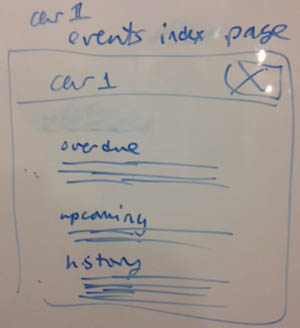 car 1
events index page
car 1
X
overdue
upcoming
history